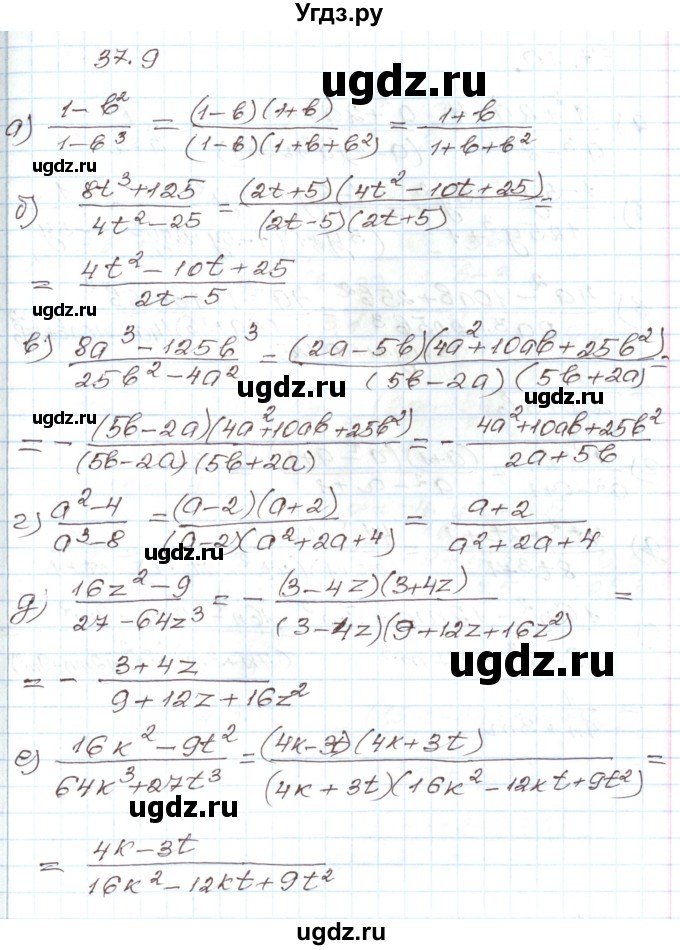 Угдз.ру
37.9
ugdz.ru
а) (1-b²)/(1-b³) = ((1-b)(1+b))/((1-b)(1+b+b²)) = (1+b)/(1+b+b²)
ugdz.ru
б) (8t³+125)/(4t²-25) = ((2t+5)(4t²-10t+25))/((2t-5)(2t+5)) =
= (4t²-10t+25)/(2t-5)
ugdz.ru
ugdz.ru
в) (8a³-125b³)/(25b²-4a²) = ((2a-5b)(4a²+10ab+25b²))/((5b-2a)(5b+2a)) =
ugdz.ru
ugdz.ru
ugdz.ru
= -((5b-2a)(4a²+10ab+25b²))/((5b-2a)(5b+2a)) = -(4a²+10ab+25b²)/(2a+5b)
г) (a²-4)/(a³-8) = ((a-2)(a+2))/((a-2)(a²+2a+4)) = (a+2)/(a²+2a+4)
ugdz.ru
д) (16z²-9)/(27-64z³) = -((3-4z)(3+4z))/((3-4z)(9+12z+16z²)) =
ugdz.ru
= -(3+4z)/(9+12z+16z²)
е) (16k²-9t²)/(64k³+27t³) = ((4k-3t)(4k+3t))/((4k+3t)(16k²-12kt+9t²)) =
ugdz.ru
= (4k-3t)/(16k²-12kt+9t²)
ugdz.ru